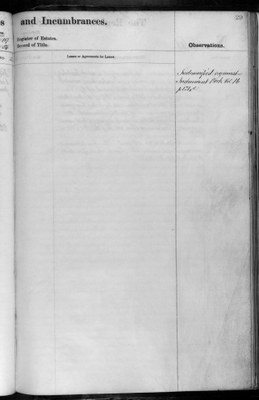 29
s and Incumbrances.
Register of Estates.
Record of Title.
Observations.
Leases or Agreements for Leases.
against
Instrument Book